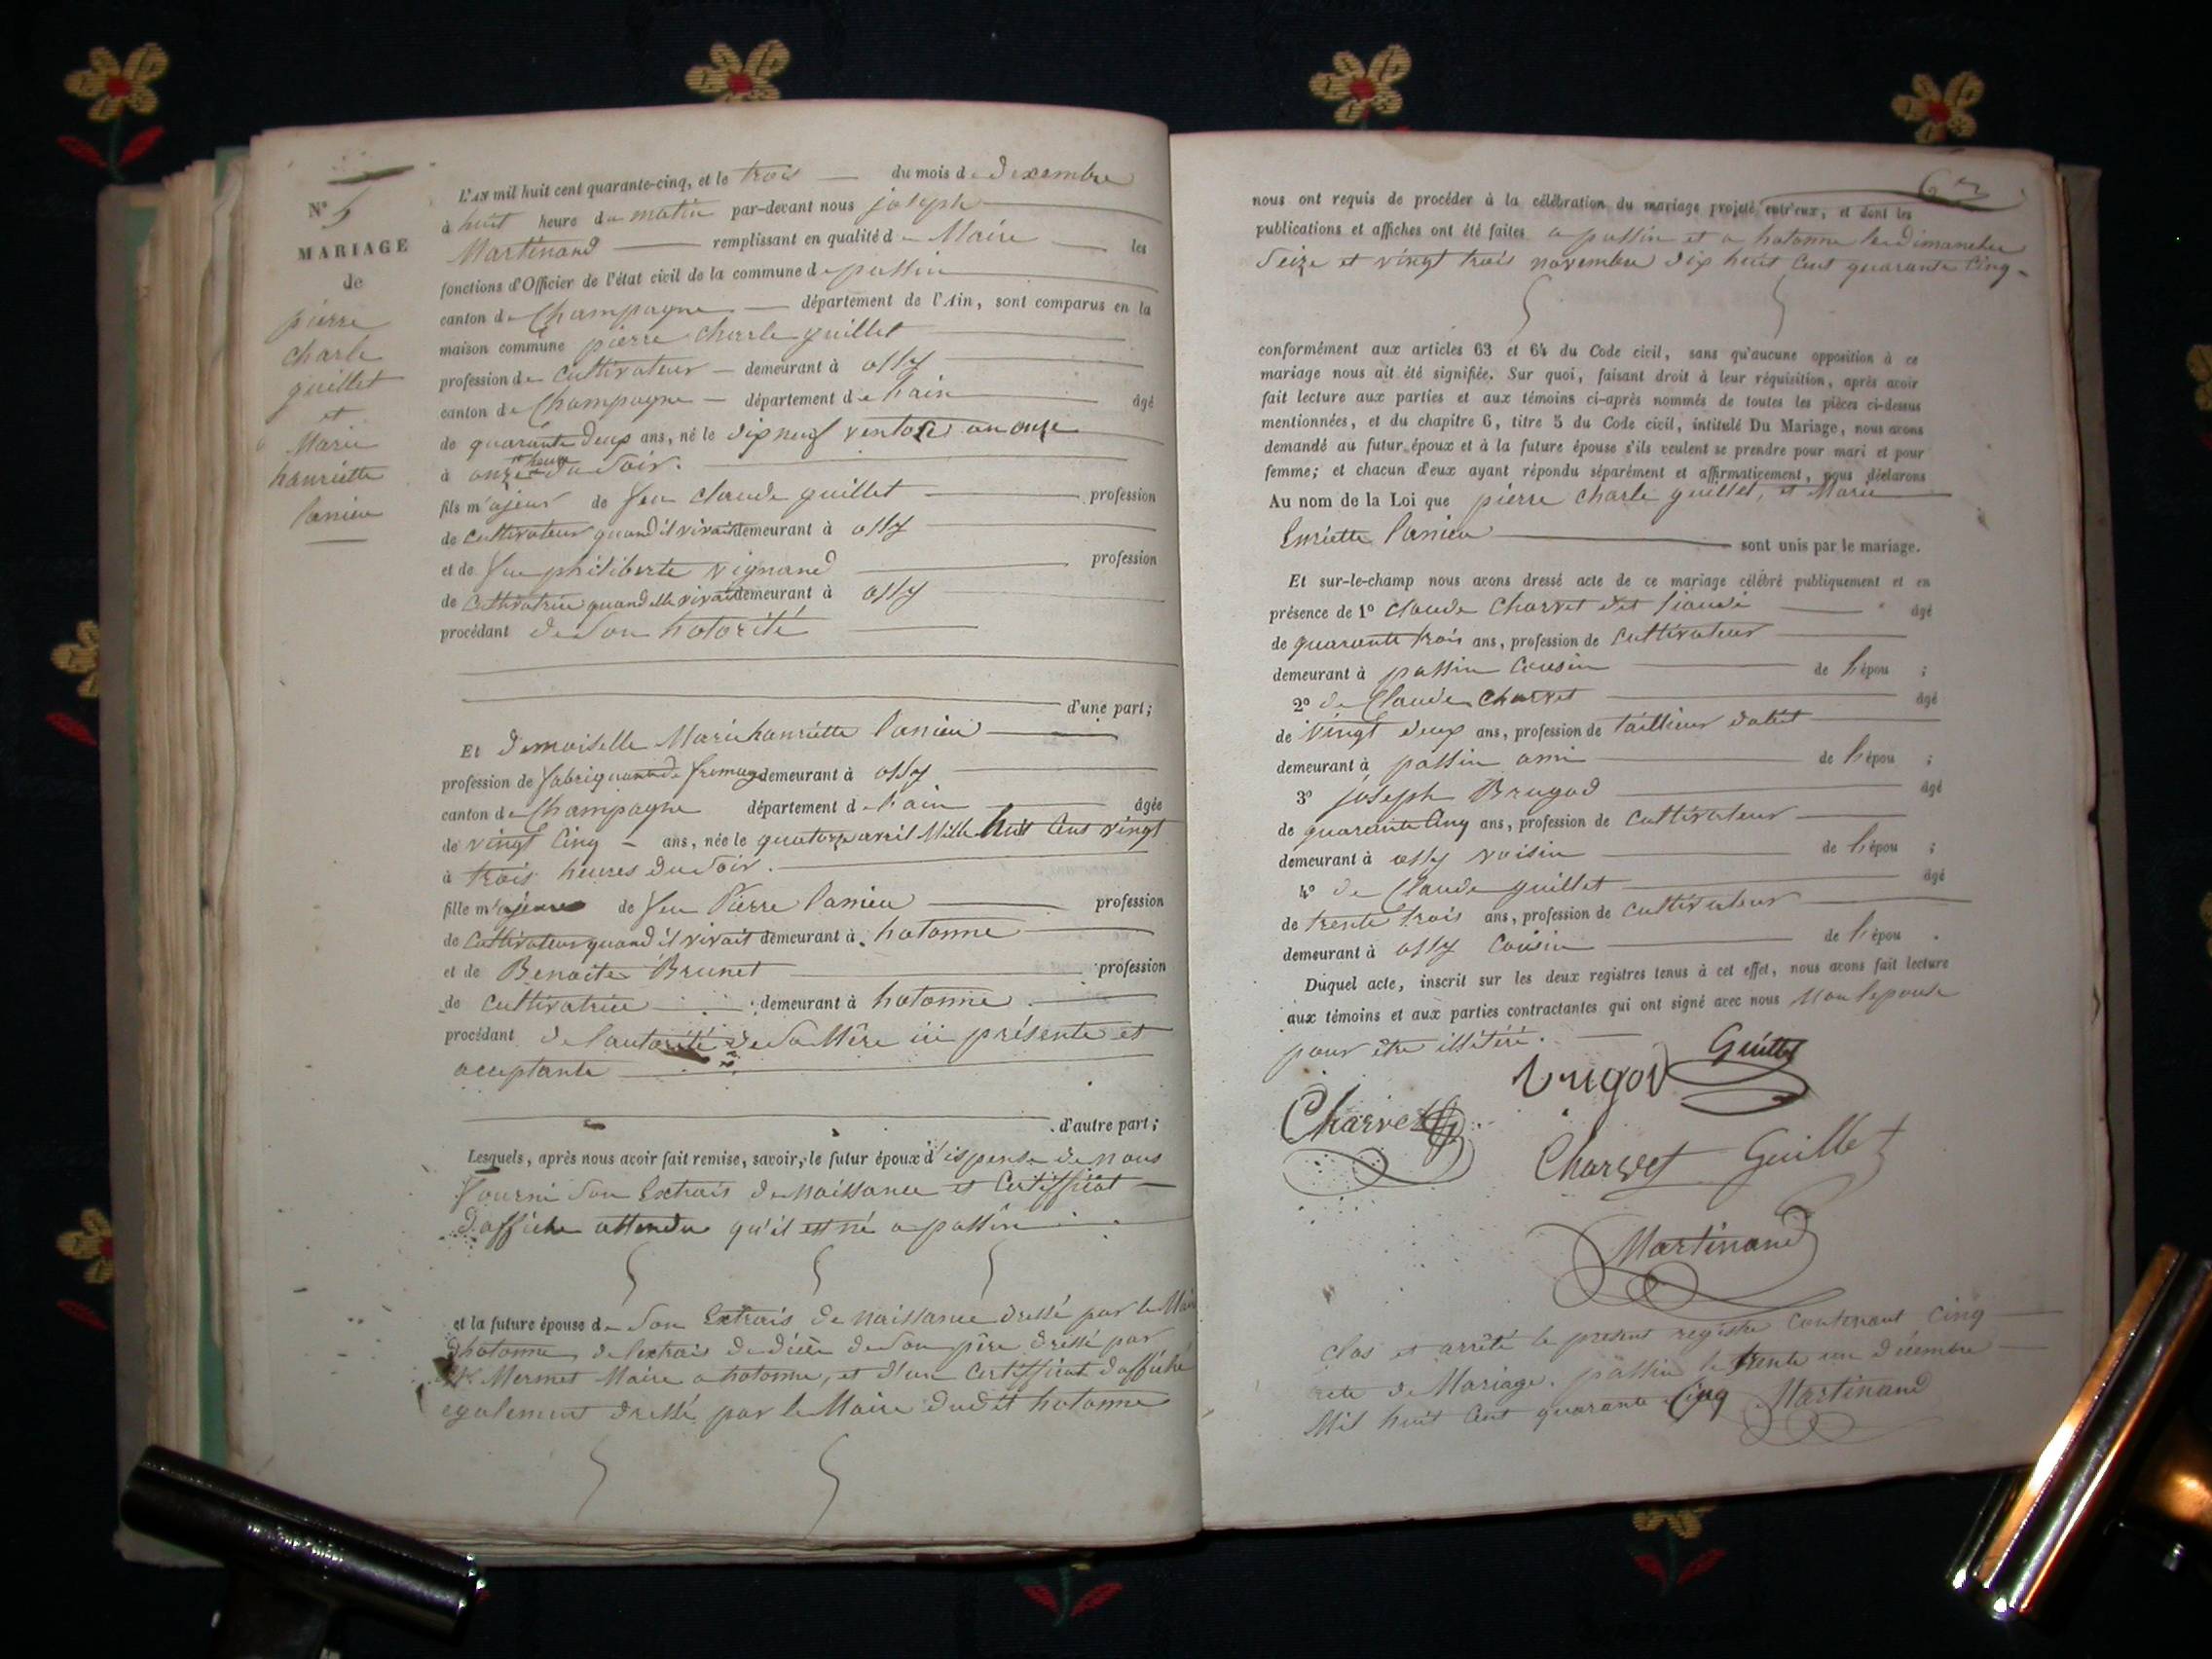 N° 5
MARIAGE
de
pierre
charle
guillet
et
Marie
hanriette
Lanieu
L'AN mil huit cent quarante-cinq, et le trois du mois de dexembre
à huit heure du matin par-devant nous joseph
Martinand remplissant en qualité de Maire les
fonctions d'Officier de l'état civil de la commune de passin
canton de Champagne département de l'Ain, sont comparus en la
maison commune pierre charle guillet
profession de cultivateur demeurant à ossy
canton de Champagne département de hain âgé
de quarante deux ans, né le dix neuf ventose an onze
à onze heure du soir.
fils majeur de feu claude guillet profession
de cultivateur quand il vivait demeurant à ossy
et de feu philiberte vignand profession
de cultivatrice quand elle vivait demeurant à ossy
procédant de son hotorité
d'une part;
Et demoiselle Marie hanriette Lanieu
profession de fabriquante de fromage demeurant à ossy
canton de Champagne département de l'ain âgée
de vingt cinq ans, née le quatorze avril Mille huit cent vingt
à trois heures du soir.
fille majeure de feu Pierre Lanieu profession
de cultivateur quand il vivait demeurant à hotonne
et de Benoite Brunet profession
de cultivatrice demeurant à hotonne
procédant de l'autorité de sa Mère ici présente et
acceptante
d'autre part;
Lesquels, après nous avoir fait remise, savoir, le futur époux dispense de nous
fourni son Extrais de naissance et Certifficat
d'affiche attendu qu'il est né a passin
et la future épouse de son Extrais de naissance dressé par le Maire
dhotonne, de lextrais de décès de son père dressé par
Mr. Mermet Maire a hotonne, et d'un Certifficat d'affiche
egalement dressé par le Maire dudit hotonne
nous ont requis de procéder à la célébration du mariage projeté entr'eux, et dont les
publications et affiches ont été faites a passin et a hotonne les dimanches
Seize et vingt trois novembre dix huit cent quarante cinq
conformément aux articles 63 et 64 du Code civil, sans qu'aucune opposition à ce
mariage nous ait été signifiée. Sur quoi, faisant droit à leur réquisition, après avoir
fait lecture aux parties et aux témoins ci-après nommés de toutes les pièces ci-dessus
mentionnées, et du chapitre 6, titre 5 du Code civil, intitulé Du Mariage, nous avons
demandé au futur époux et à la future épouse s'ils veulent se prendre pour mari et pour
femme; et chacun d'eux ayant répondu séparément et affirmativement, nous déclarons
Au nom de la Loi que pierre charle guillet, et Marie
Enriette Lanieu sont unis par le mariage.
Et sur-le-champ nous avons dressé acte de ce mariage célébré publiquement et en
présence de 1° claude Charvet dit âgé
de quarante trois ans, profession de cultivateur
demeurant à passin cousin de l'épou ;
2° de Claude charvet âgé
de vingt deux ans, profession de taillieur dabit
demeurant à passin ami de l'épou ;
3° joseph Brugod âgé
de quarante cinq ans, profession de cultivateur
demeurant à ossy voisin de l'épou ;
4° de Claude guillet âgé
de trente trois ans, profession de cultivateur
demeurant à ossy cousin de l'épou .
Duquel acte, inscrit sur les deux registres tenus à cet effet, nous avons fait lecture
aux témoins et aux parties contractantes qui ont signé avec nous Non lepouse
pour être illétéré.
Guillet
Charvet
Charvet Guillet
Martinand
Clos et arrêté le present registre Contenant Cinq
acte de Mariage. passin le trente un décembre
Mil huit Cent quarante Cinq Martinand